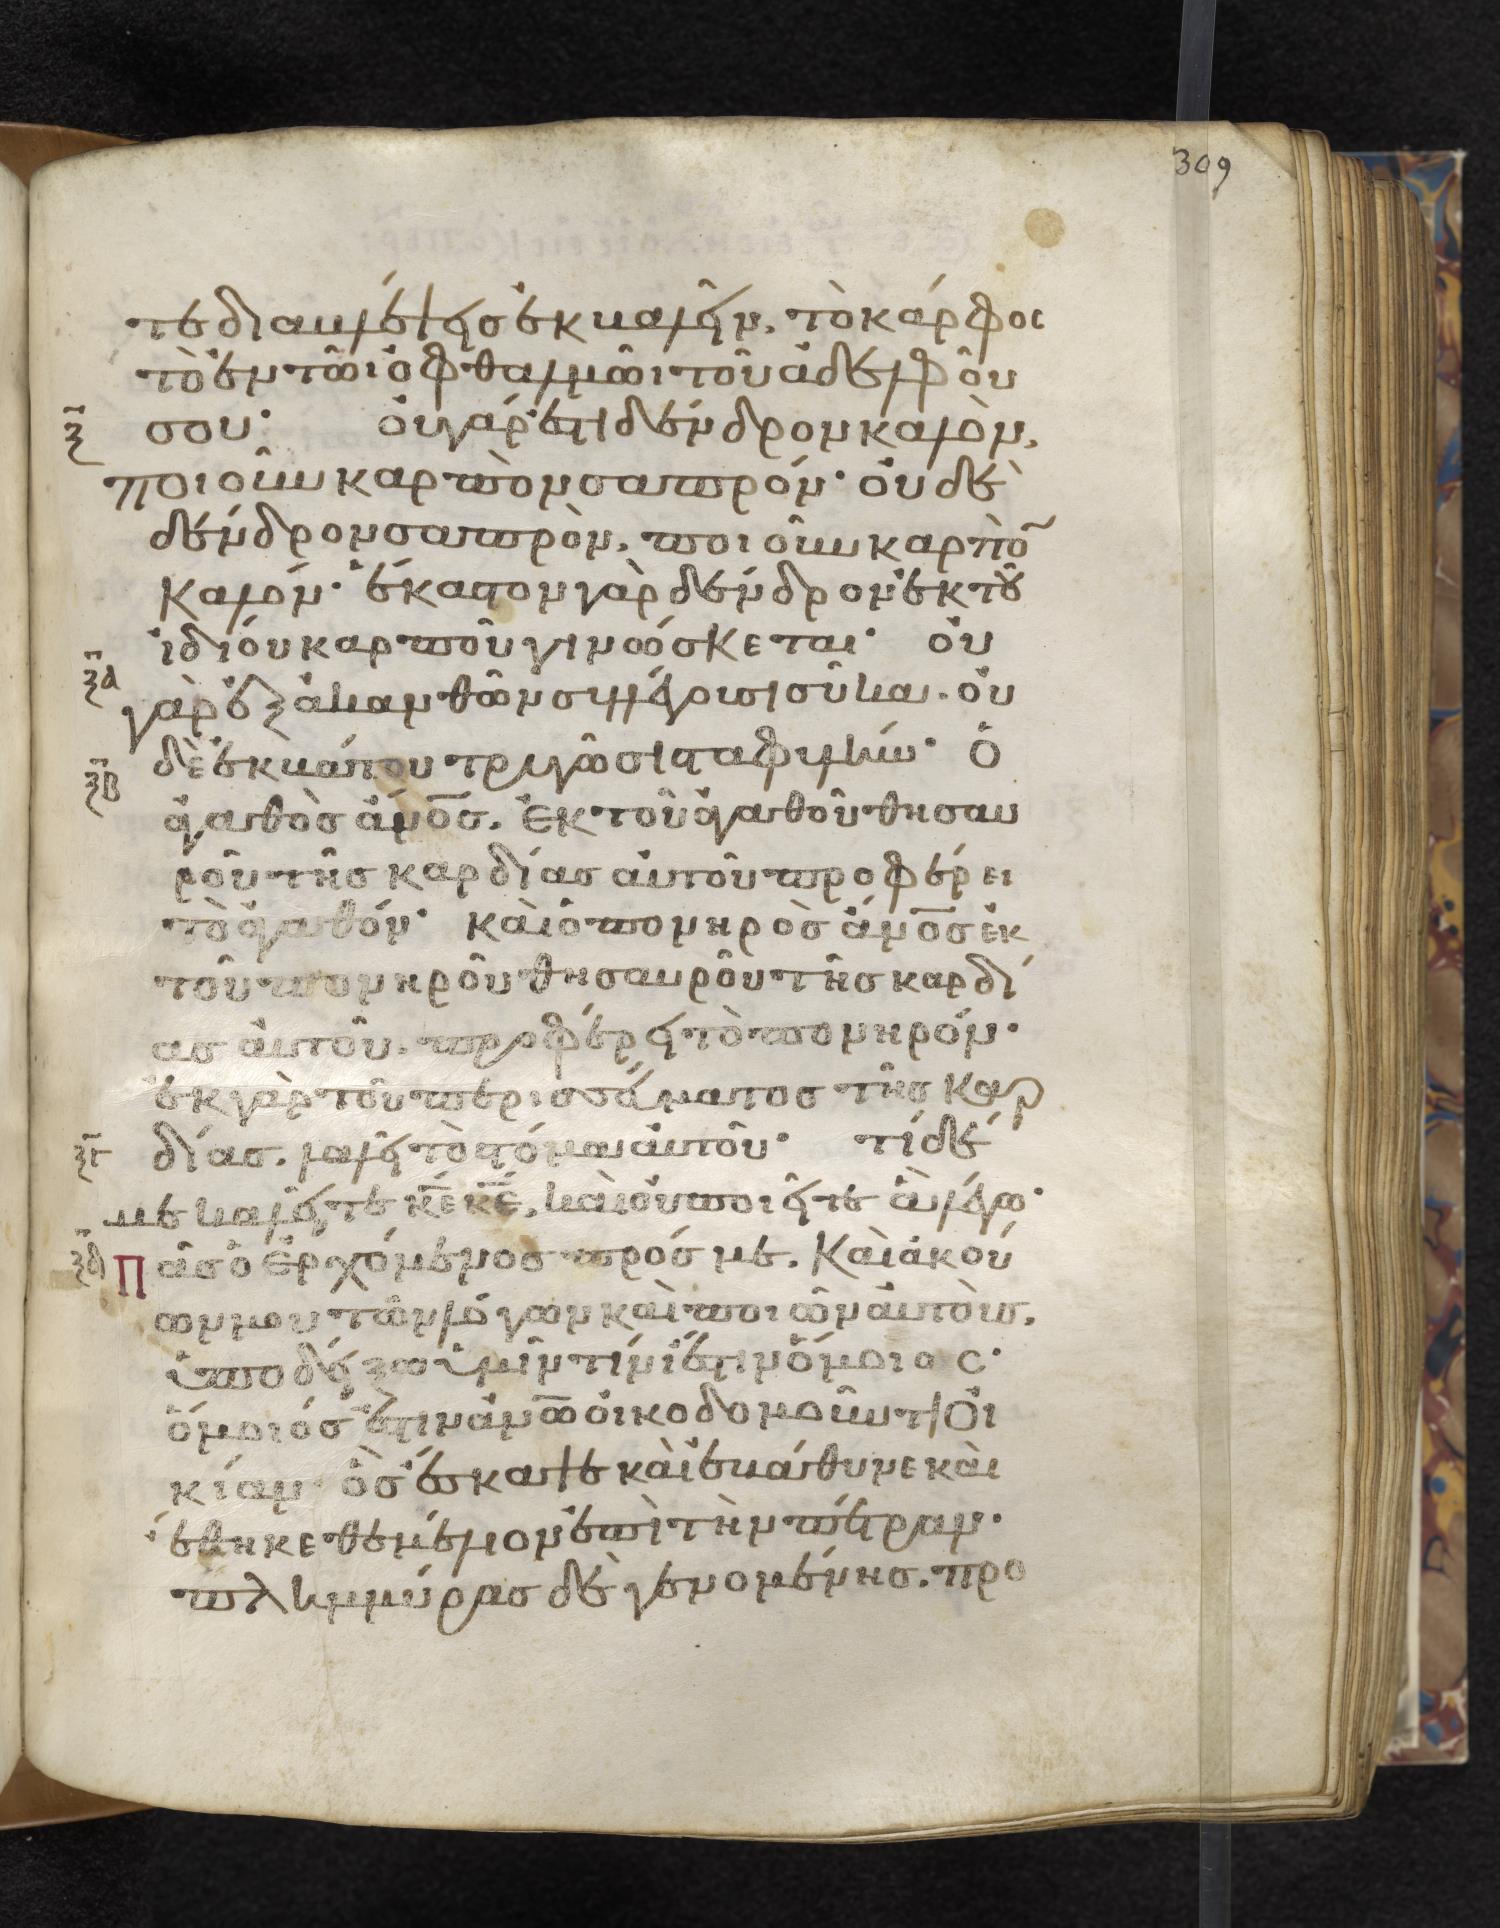 309
τε διαβλέψεις ἐκβαλεῖν, τὸ κάρφος
τὸ ἐν τῶι ὀφθαλμῶι τοῦ ἀδελφοῦ
ξ σου· οὐ γάρ ἐστι δένδρον καλὸν,
ποιοῦν καρπὸν σαπρόν· οὐδὲ
δένδρον σαπρὸν, ποιοῦν καρπὸ̄
καλόν· ἕκαστον γὰρ δένδρον ἐκ τοῦ
ἰδίου καρποῦ γινώσκεται· οὐ
ξα γὰρ ἐξ ἀκανθῶν συλλέγουσι σῦκα· οὐ
ξβ δὲ ἐκ βάτου τρυγῶσι σταφυλήν· ὁ
ἀγαθὸς ἀν̅ο̅ς̅. ἐκ τοῦ ἀγαθοῦ θησαυ
ροῦ τῆς καρδίας αὐτοῦ προφέρει
τὸ ἀγαθόν· καὶ ὁ πονηρὸς ἀν̅ο̅ς̅ ἐκ
τοῦ πονηροῦ θησαυροῦ τῆς καρδί
ας αὐτοῦ. προφέρει τὸ πονηρόν·
ἐκ γὰρ τοῦ περισσεύματος τῆς καρ
ξγ δίας. λαλεῖ τὸ στόμα αὐτοῦ· τί δέ
με καλεῖτε κ̅ε̅ κ̅ε̅, καὶ οὐ ποιεῖτε ἃ λέγω·
ξδ Πᾶς ὁ ἐρχόμενος πρός με. καὶ ἀκού
ων μου τῶν λόγων καὶ ποιῶν αὐτοὺς,
ὑποδείξω ὑμῖν τίνι ἐστιν ὅμοιος·
ὅμοιός ἐστιν ἀν̅ω̅ οἰκοδομοῦντι οἰ
κίαν· ὃς ἔσκαψε καὶ ἐβάθυνε καὶ
ἔθηκε θεμέλιον ἐπὶ τὴν πέτραν·
πλημμύρας δὲ γενομένης. προ